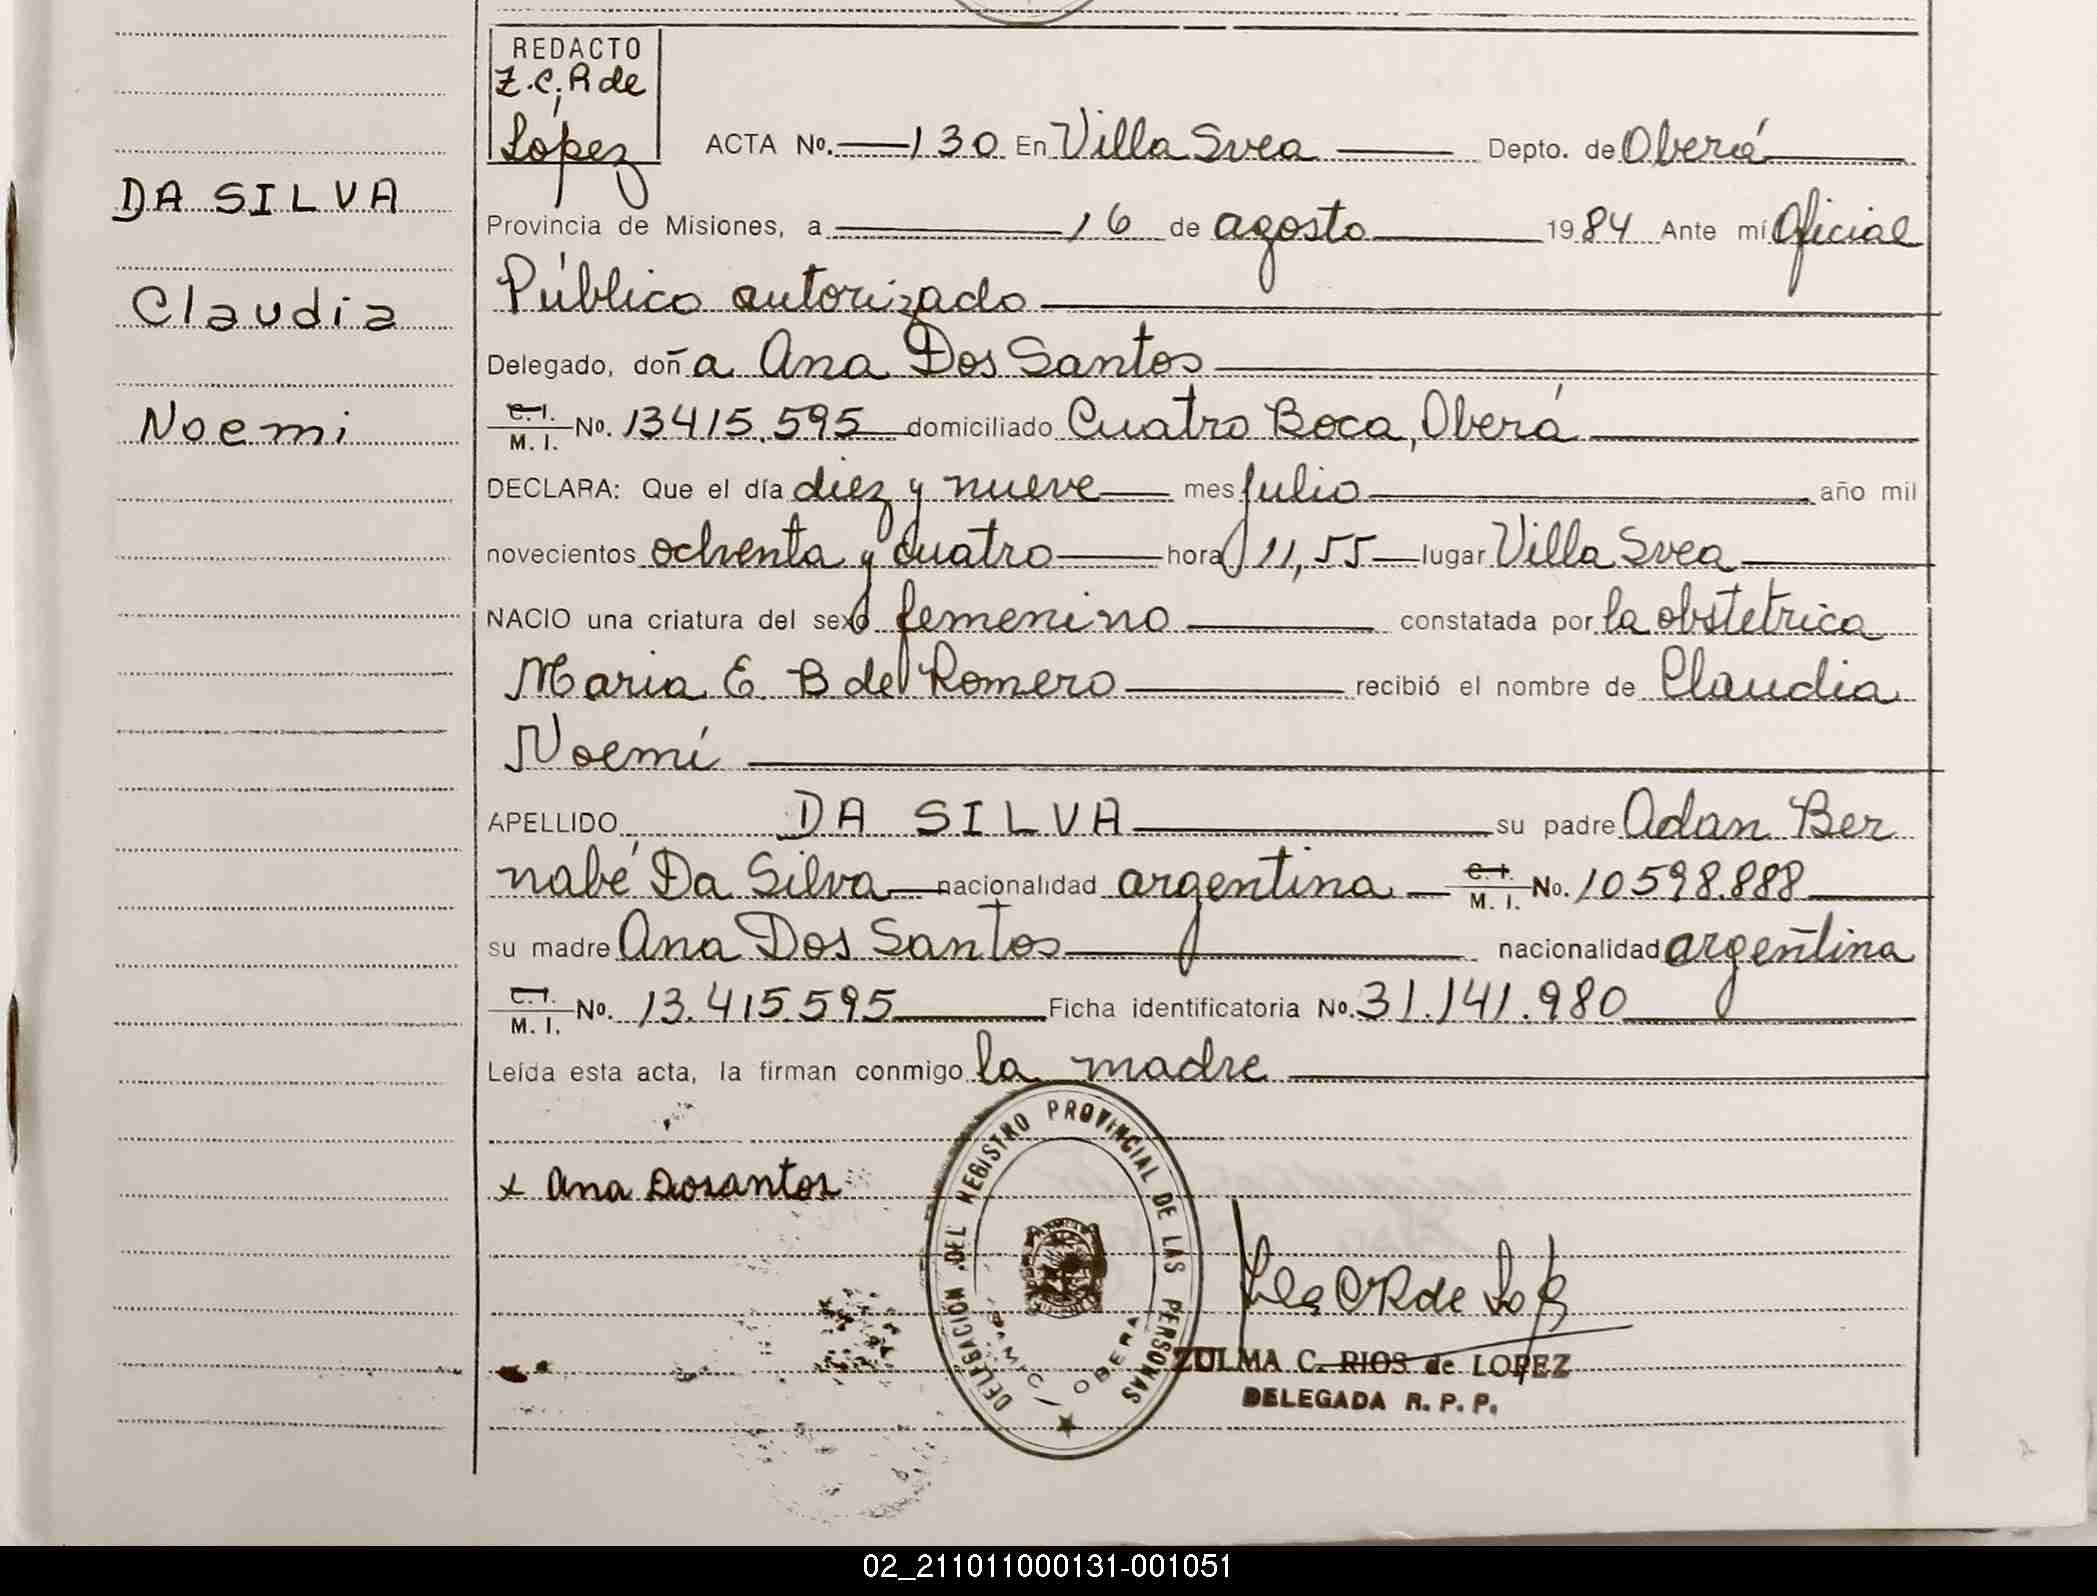 REDACTO
Z.C.R de
López
ACTA No. 130 En Villa Svea Depto. de Oberá
DA SILVA
Provincia de Misiones, a 16 de agosto 1984 Ante mí Oficial
Público autorizado
Claudia
Delegado, doña Ana Dos Santos
Noemi
C. I. M. I. No. 13415.595 domiciliado Cuatro Boca, Oberá
DECLARA: Que el día diez y nueve mes julio año mil
novecientos ochenta y cuatro hora 11,55 lugar Villa Svea
NACIO una criatura del sexo femenino constatada por la obstetrica
Maria E. B de Romero recibió el nombre de Claudia
Noemí
APELLIDO DA SILVA su padre Adan Ber
nabé Da Silva nacionalidad argentina C. I. M. I. No. 10598.888
su madre Ana Dos Santos nacionalidad argentina
C. I. M. I. No. 13.415.595 Ficha identificatoria No. 31.141.980
Leída esta acta, la firman conmigo la madre
x Ana Dosantos
DELEGACION DEL REGISTRO PROVINCIAL DE LAS PERSONAS
OBERA
ZULMA C. RIOS de LOPEZ
DELEGADA R. P. P.
02_211011000131-001051